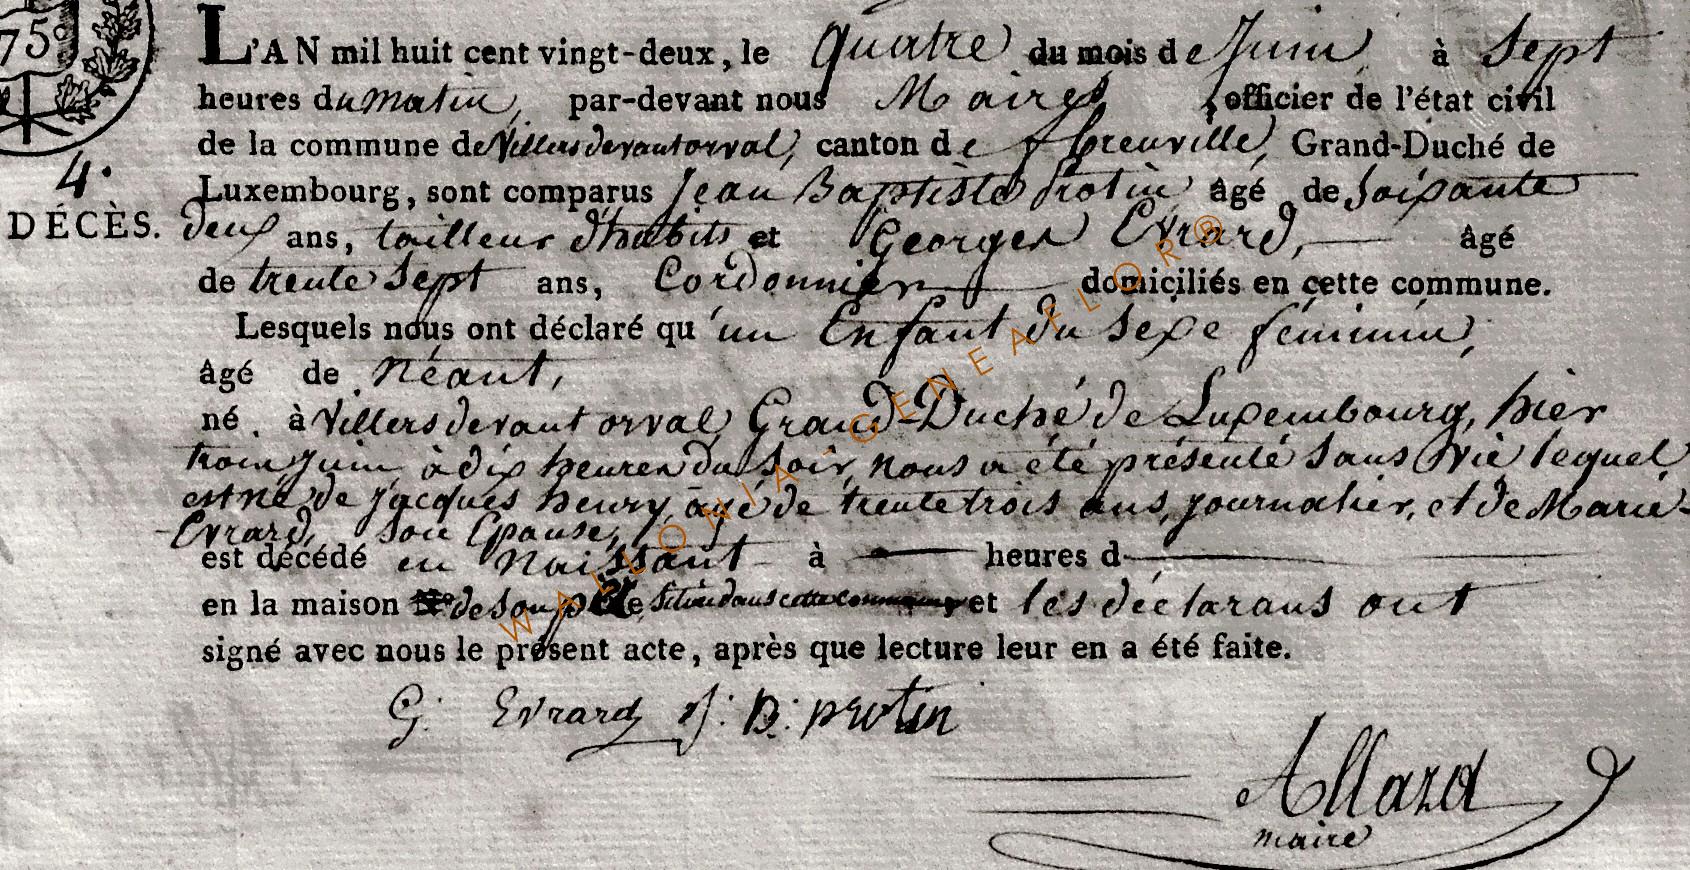 75c
L'AN mil huit cent vingt-deux, le Quatre du mois de Juin, à Sept
heures du matin, par-devant nous Maires, officier de l'état civil
de la commune de Villersdevantorval, canton de florenville, Grand-Duché de
4.
Luxembourg, sont comparus Jean Baptiste Protin âgé de Soixante
DÉCÈS.
deux ans, tailleur d'habits et Georges Evrard, âgé
de trente Sept ans, Cordonnier domiciliés en cette commune.
Lesquels nous ont déclaré qu'un Enfant du Sexe féminin,
âgé de Néant,
né à Villersdevant orval, Grand-Duché de Luxembourg, hier
trois juin, à dix heures du Soir, nous a été présenté Sans Vie lequel
est né de Jacques henry, âgé de trente trois ans, journalier, et de Marie
Evrard, Son Epouse,
est décédé en Naissant à heures d
en la maison de Son père Située dans cette commune, et les déclarans ont
signé avec nous le présent acte, après que lecture leur en a été faite.
G: Evrard J: B: protin
Allard
maire
WALLONIA-GENEAFLOR®